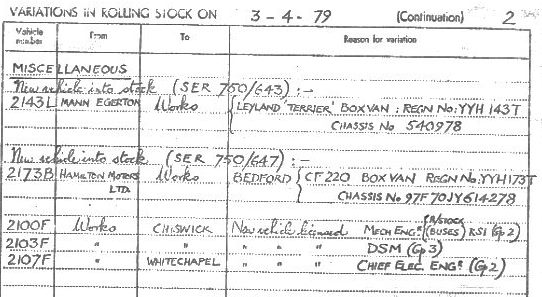 VARIATIONS IN ROLLING STOCK ON 3 - 4 - 79 (Continuation) 2
Vehicle number From To Reason for variation
MISCELLANEOUS
New vehicle into stock (SER 750/643) :-
2143L MANN EGERTON Works {LEYLAND 'TERRIER' BOXVAN : REGN No: YYH 143T
CHASSIS No 540978
New vehicle into stock (SER 750/647) :-
2173B HAMILTON MOTORS LTD. Works BEDFORD {CF220 BOX VAN REGN No: YYH173T
CHASSIS No. 97F70JY614278
2100F Works CHISWICK New vehicle licensed MECH ENGR (R/STOCK (BUSES) RS1 (Gp2)
2103F " " " " " DSM (Gp3)
2107F " WHITECHAPEL " " " CHIEF ELEC. ENGR (Gp2)